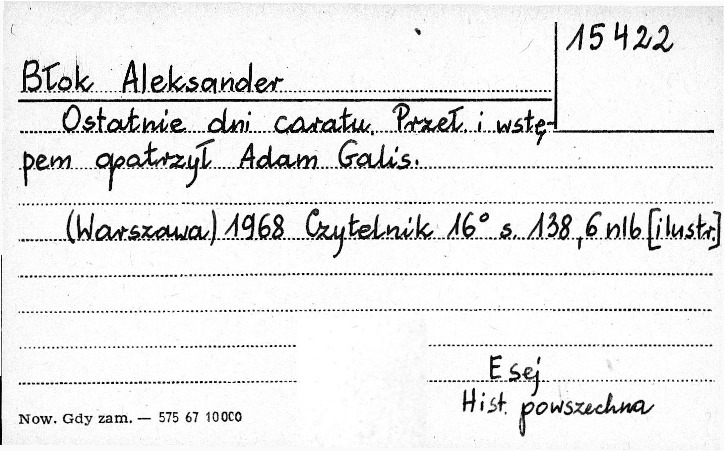 15422
Błok Aleksander
Ostatnie dni caratu. Przeł. i wstę-
pem opatrzył Adam Galis.
(Warszawa) 1968 Czytelnik 16° s. 138, 6 nlb [ilustr.]
Esej
Hist. powszechna
Now. Gdy zam. — 575 67 10000